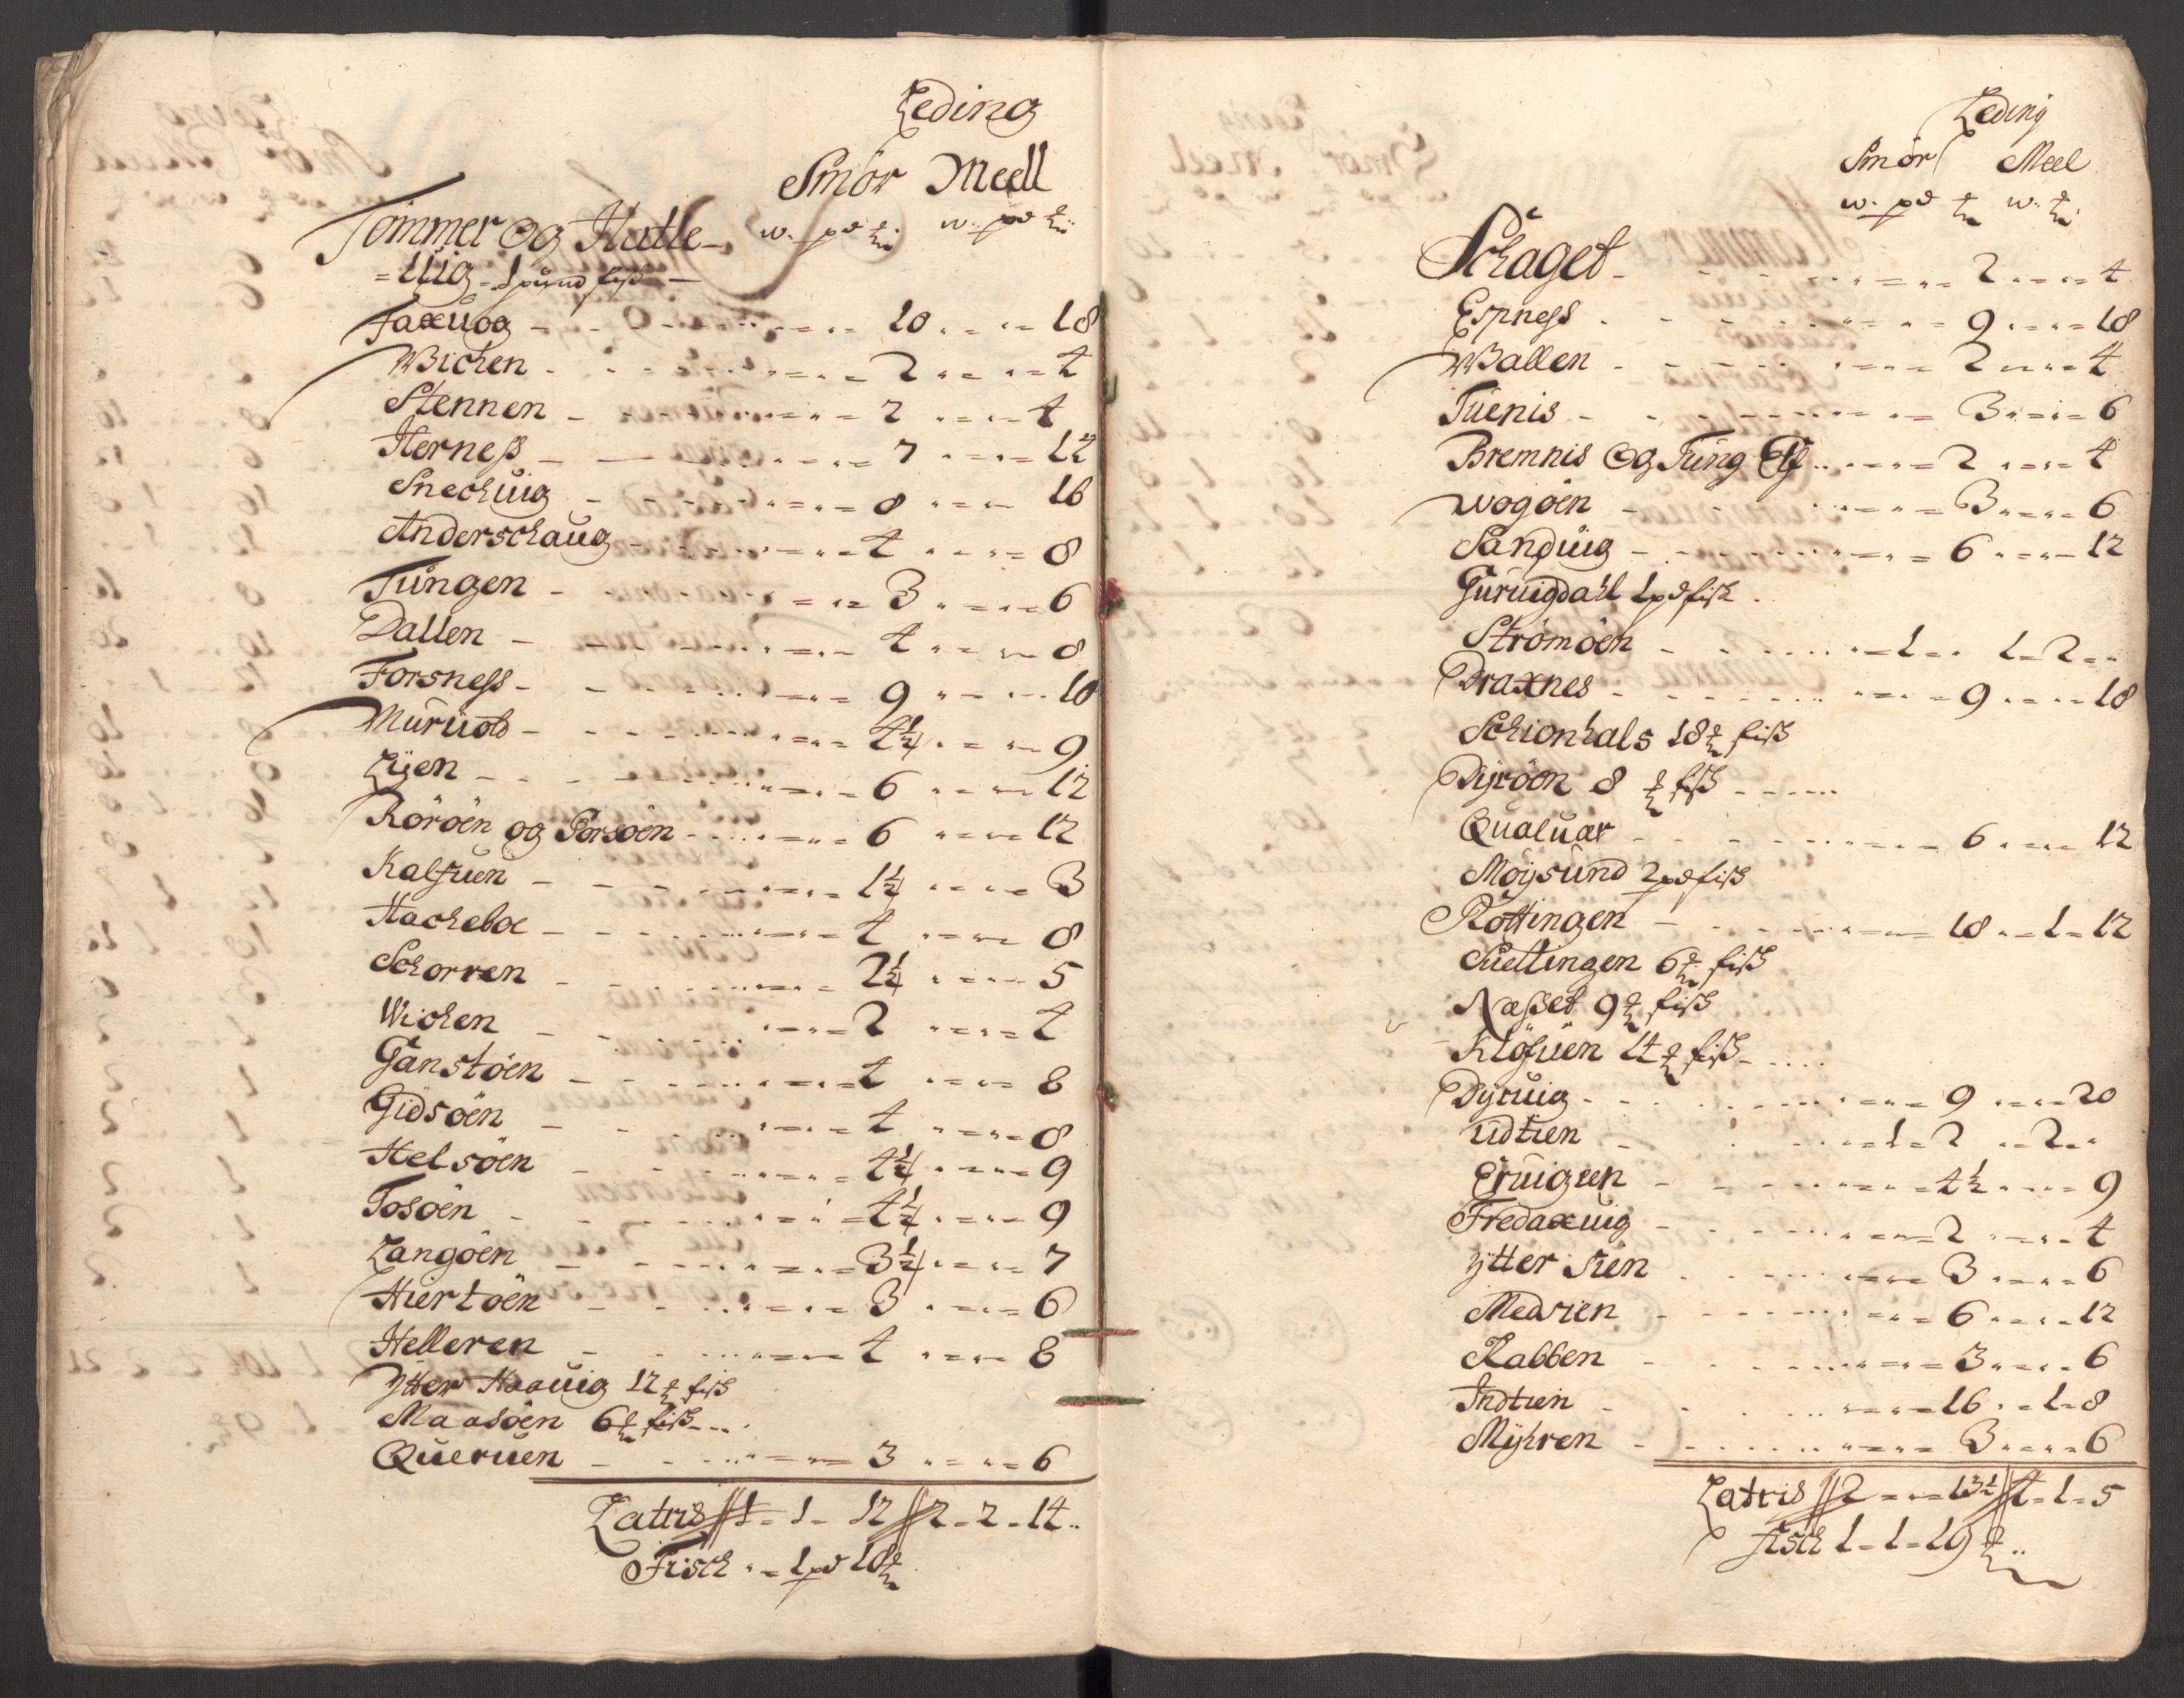 Leding
Smör Meell
w. pd ℔ w. pd ℔
Tömmer og Hatle-
=uiig - 1 pund fisk -
Faxuog - - 10 - - 18
Wichen - - 2 - - 4
Stennen - - 2 - - 4
Herness - - 7 - - 14
Snechuig - - 8 - - 16
Anderschaug - - 4 - - 8
Tungen - - 3 - - 6
Dallen - - 4 - - 8
Forsness - - 9 - - 18
Muruold - - 4½ - - 9
Lijen - - 6 - - 12
Röröen og Porsöen - - 6 - - 12
Kalfuen - - 1½ - - 3
Hacheboe - - 4 - - 8
Schorren - - 2½ - - 5
Wichen - - 2 - - 4
Ganstöen - - 4 - - 8
Gidsöen - - 4 - - 8
Helsöen - - 4½ - - 9
Tosöen - - 4½ - - 9
Langöen - - 3½ - - 7
Hiertöen - - 3 - - 6
Helleren - - 4 - - 8
Ytter Haauig 12 ℔ fisk
Maasöen 6 ℔ fisk - - -
Queruen - - 3 - - 6
Latris // 1 - 1 - 12 // 2 - 2 - 14 ..
Fisch - 1 pd 18 ℔
Leding
Smör Meel
w. pd ℔ w. ℔
Schaget - - 2 - - 4
Espness - - 9 - - 18
Wallen - - 2 - - 4
Tuenis - - 3 - - 6
Bremnis og Tung - - 2 - - 4
Wogöen - - 3 - - 6
Sanduig - - 6 - - 12
Guruigdahl 1 pd fisk .
Strömöen - - 1 - - 1 - 2 - -
Draxnes - - 9 - - 18
Schionhals 18 ℔ fisk
Dyröen 8 ℔ fisk - - - -
Qualuær - - 6 - - 12
Möysund 2 pd fisk
Röttingen - - 18 - - 1 - 12
Suellingen 6 ℔ fisk
Næsset 9 ℔ fisk
Klöfuen 14 ℔ fisk - - - -
Dyruig - - 9 - - 20
udtien - - 1 - 2 - - 2 - -
Eruigen - - 4½ - - 9
Fredaxuig - - 2 - - 4
Ytter sien - - 3 - - 6
Medsien - - 6 - - 12
Kabben - - 3 - - 6
Indtien - - 16 - - 1 - 8
Myhren - - 3 - - 6
Latris // 2 - - 13½ // 4 - 1 - 5
fisch 1 - 1 - 19 ℔ ..